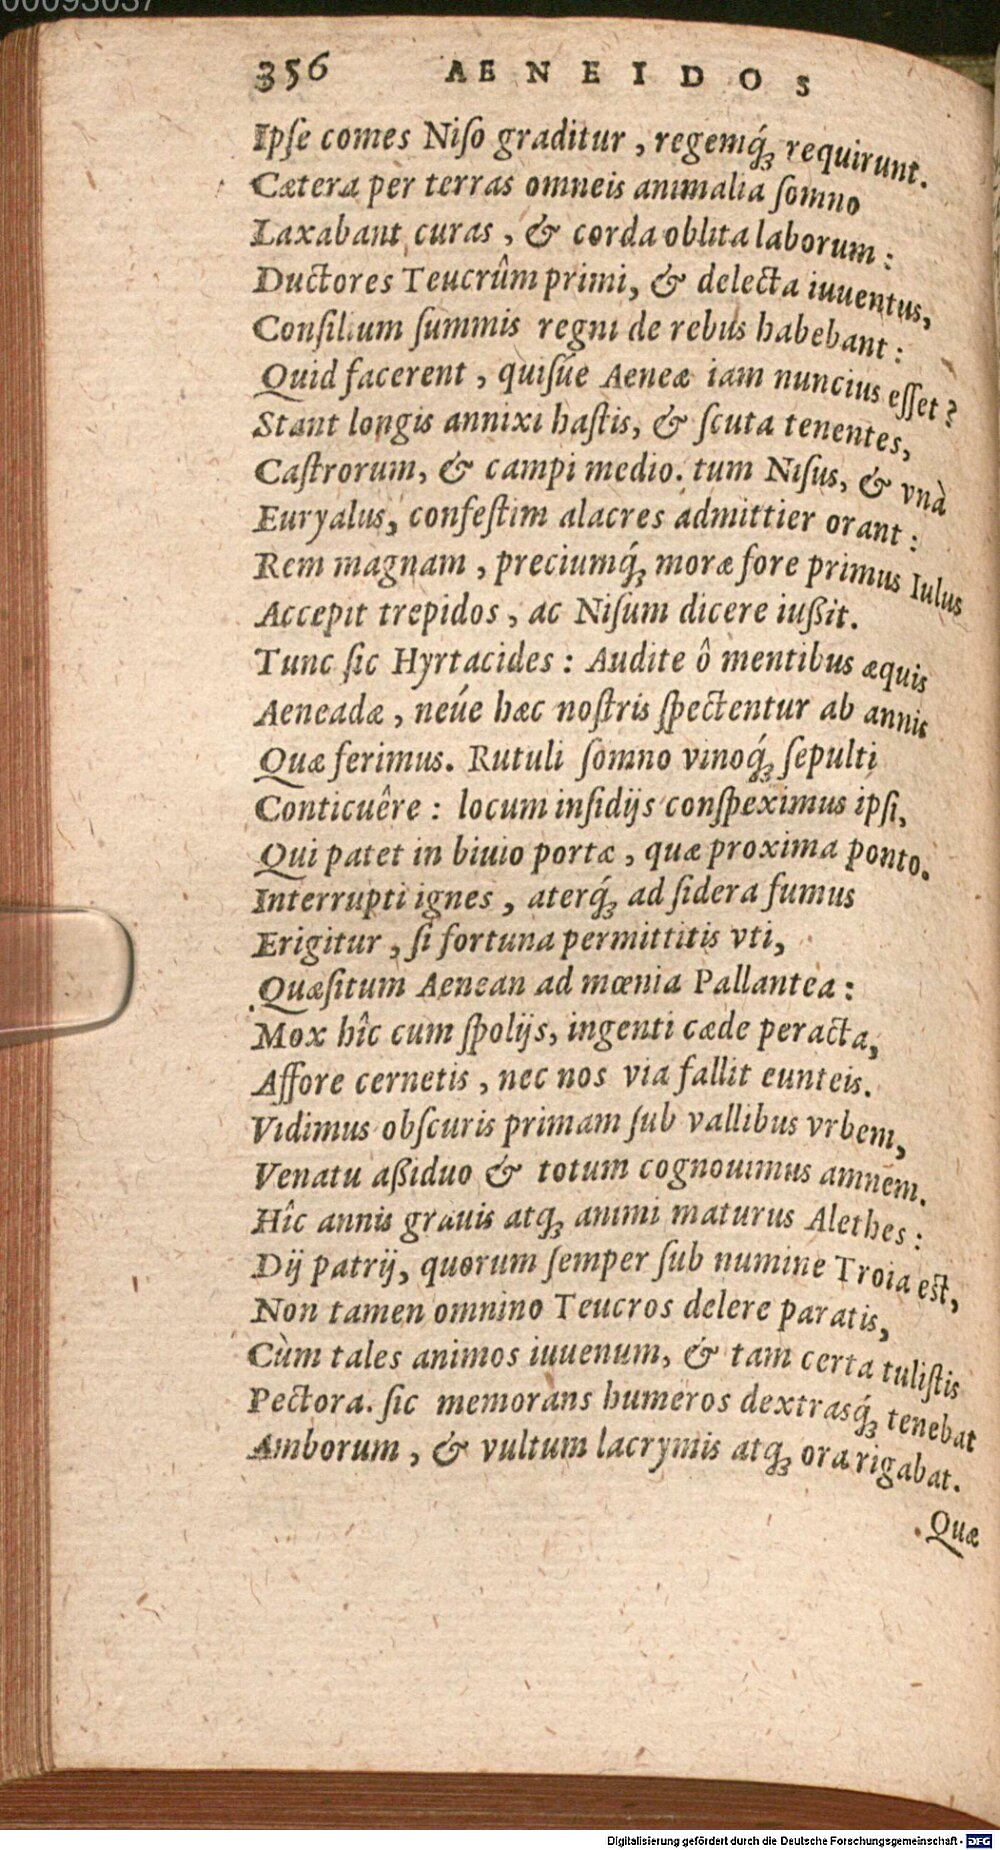 356 AENEIDOS
Ipſe comes Niſo graditur, regemq́ꝫ requirunt.
Cætera per terras omneis animalia ſomno
Laxabant curas, & corda oblita laborum:
Ductores Teucrûm primi, & delecta iuuentus,
Conſilium ſummis regni de rebus habebant:
Quid facerent, quiſúe Aeneæ iam nuncius eſſet?
Stant longis annixi haſtis, & ſcuta tenentes,
Caſtrorum, & campi medio. tum Niſus, & vnà
Euryalus, confeſtim alacres admittier orant:
Rem magnam, preciumq́ꝫ moræ fore primus Iulus
Accepit trepidos, ac Niſum dicere iußit.
Tunc ſic Hyrtacides: Audite ô mentibus æquis
Aeneadæ, neúe hæc noſtris ſpectentur ab annis
Quæ ferimus. Rutuli ſomno vinoq́ꝫ ſepulti
Conticuêre: locum inſidijs conſpeximus ipſi,
Qui patet in biuio portæ, quæ proxima ponto.
Interrupti ignes, aterq́ꝫ ad ſidera fumus
Erigitur, ſi fortuna permittitis vti,
Quæſitum Aenean ad mœnia Pallantea:
Mox hîc cum ſpolijs, ingenti cæde peracta,
Affore cernetis, nec nos via fallit eunteis.
Vidimus obſcuris primam ſub vallibus vrbem,
Venatu aßiduo & totum cognouimus amnem.
Hîc annis grauis atqꝫ animi maturus Alethes:
Dij patrij, quorum ſemper ſub numine Troia eſt,
Non tamen omnino Teucros delere paratis,
Cùm tales animos iuuenum, & tam certa tuliſtis
Pectora. ſic memorans humeros dextrasq́ꝫ tenebat
Amborum, & vultum lacrymis atqꝫ ora rigabat.
Quæ
Digitalisierung gefördert durch die Deutsche Forschungsgemeinschaft - DFG